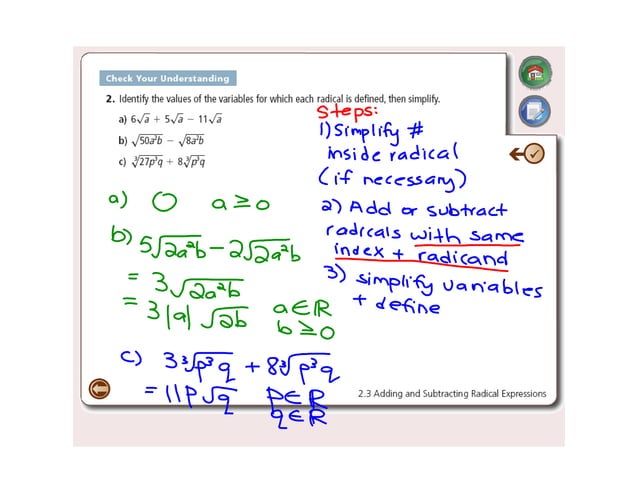 Check Your Understanding
2. Identify the values of the variables for which each radical is defined, then simplify.
a) 6√a + 5√a − 11√a
b) √50a²b − √8a²b
c) ∛27p³q + 8∛p³q
Steps:
1) Simplify #
inside radical
(if necessary)
2) Add or subtract
radicals with same
index + radicand
3) simplify variables
+ define
a) 0 a ≥ 0
b) 5√2a²b − 2√2a²b
= 3√2a²b
= 3|a| √2b a∈R
b ≥ 0
c) 3∛p³q + 8∛p³q
= 11p√q p∈R
q∈R
2.3 Adding and Subtracting Radical Expressions